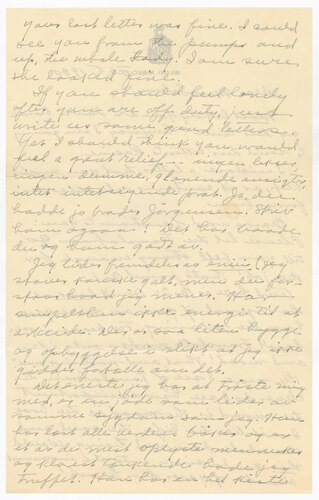 your last letter was fine. I could
see you from the pumps and
up, the whole lady. I am sure
she looked fine.
If you should feel lonely
after you are off duty, just
write us some good letters.
Yet I should think you would
feel a great relief – ingen
ingen dumme, glanende
intet intetsigende prat. Jo, du
hadde jo brødre Jørgensen. Skriv
ham ogsaa! Det har baade
du og ham godt av.
Jeg lider fremdeles av min (jeg
staves kanske galt, men du for-
staar hvad jeg mener. Har
simpelthen ikke energi til at
arbeide. Der er saa liten hygge
og opbyggelse i slikt at jeg ikke
gider fortælle om det.
Det eneste jeg har at trøste mig
med, er en som lider av
samme sygdom som jeg. Han
har lest alle bøker og er
et av de mest oplyste mennesker
og klarest tænkende hode jeg
truffet. Han har en hel kiste